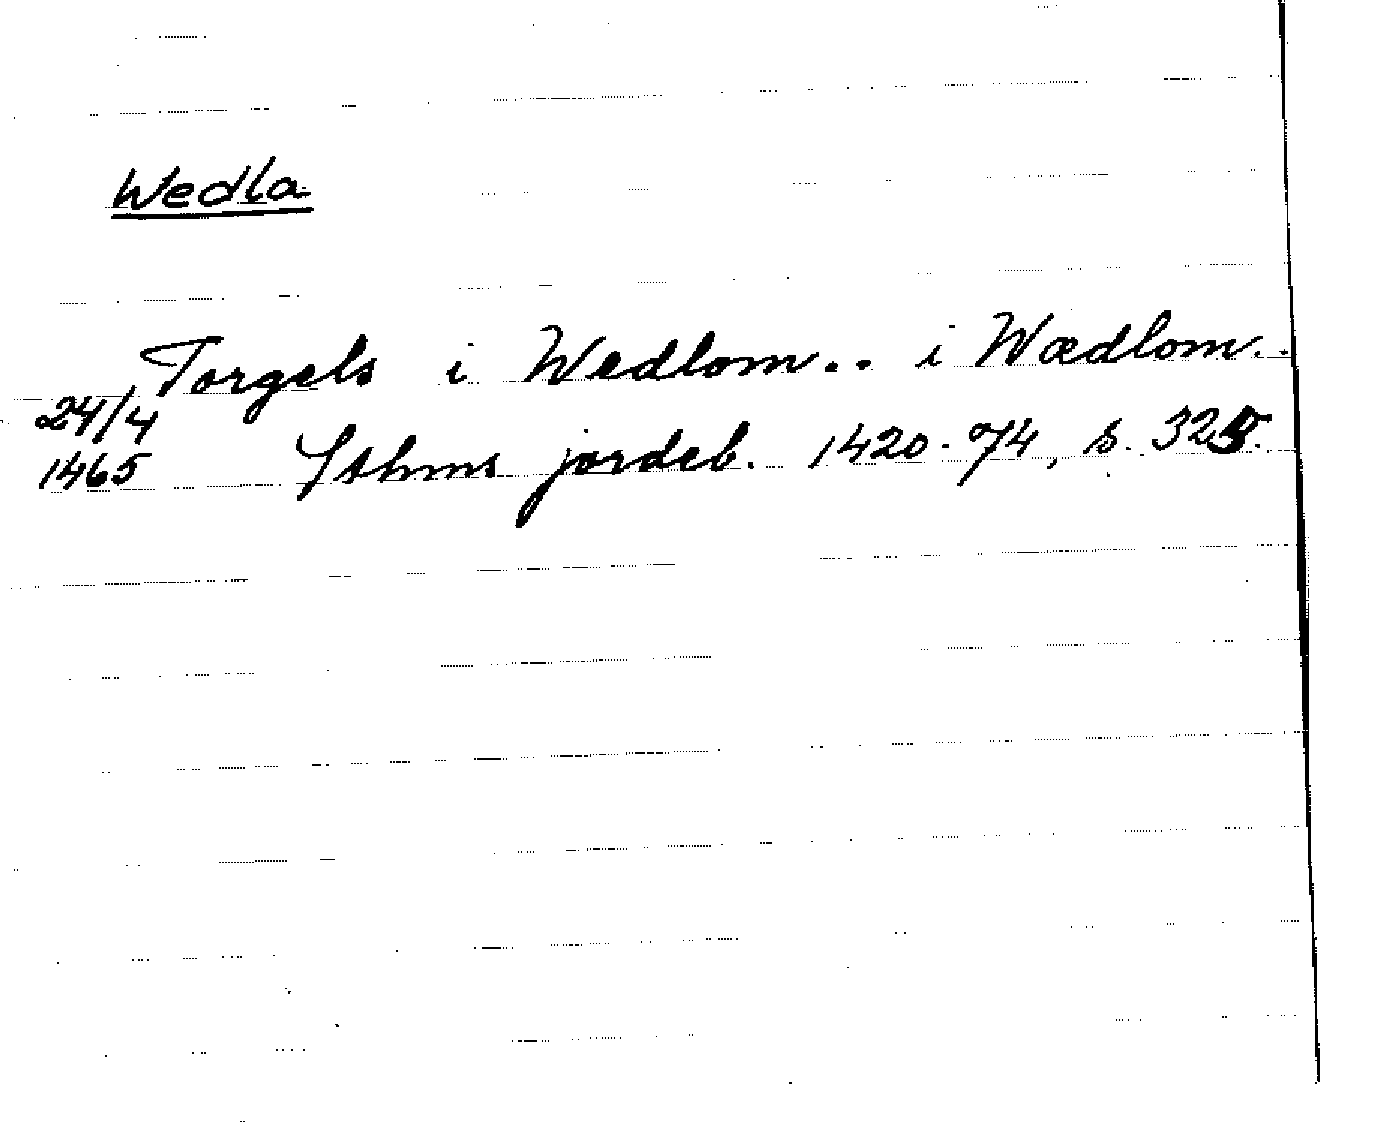 Wedla
Torgels i Wedlom.. i Wædlom..
24/4
1465 Sthms jordeb. 1420-74, s. 325.